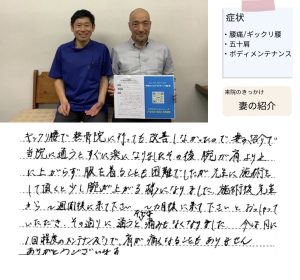 症状
・腰痛/ギックリ腰
・五十肩
・ボディメンテナンス
来院のきっかけ
妻の紹介
ギックリ腰で整骨院に行っても改善しなかったので妻の紹介で
当院に通うとすぐに楽になりました。その後、腕が肩より上
に上がらず服を着ることも困難でしたが先生に施術を
して頂くと少し腕が上がる様になりました。施術後、先生
から1週間後に来て下さい、1カ月後に来て下さいとおっしゃって
いただき、その通りに通うと不思議と痛みがなくなりました。今は月に
1回程度のメンテナンスで、肩が痛くなることもありません。
ありがとうございます。